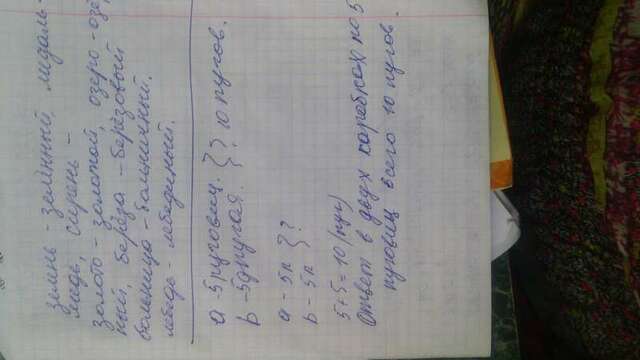 земнь - зелённый, медаль -
медь, сирень -
золото - золотой, озеро - озё
ный, берёза - берёзовый
боленица - больничный.
лебедь - лебединый.
а - 5 пуговиц. } ? 10 пугов.
b - 5 другая.
а - 5 п } ?
b - 5 п
5 + 5 = 10 (пуг)
Ответ в двух коробках по 5
пуговиц всего 10 пугов.